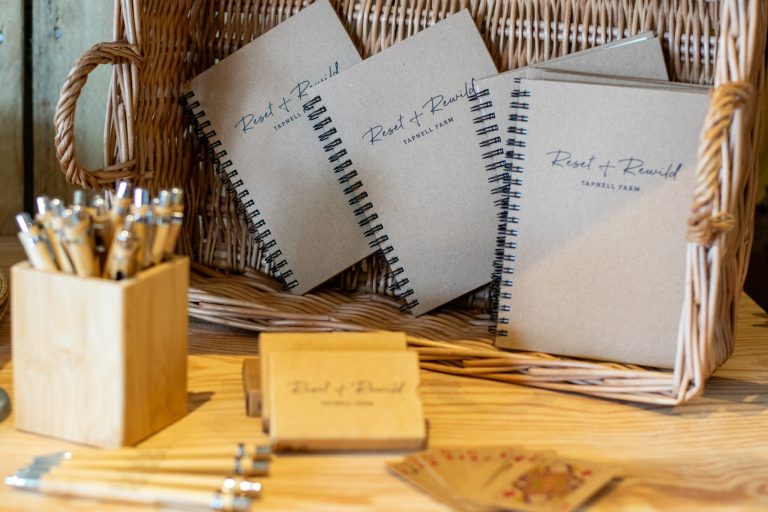 Reset + Rewild
TAPNELL FARM
Reset + Rewild
TAPNELL FARM
Reset + Rewild
TAPNELL FARM
Reset + Rewild
TAPNELL FARM